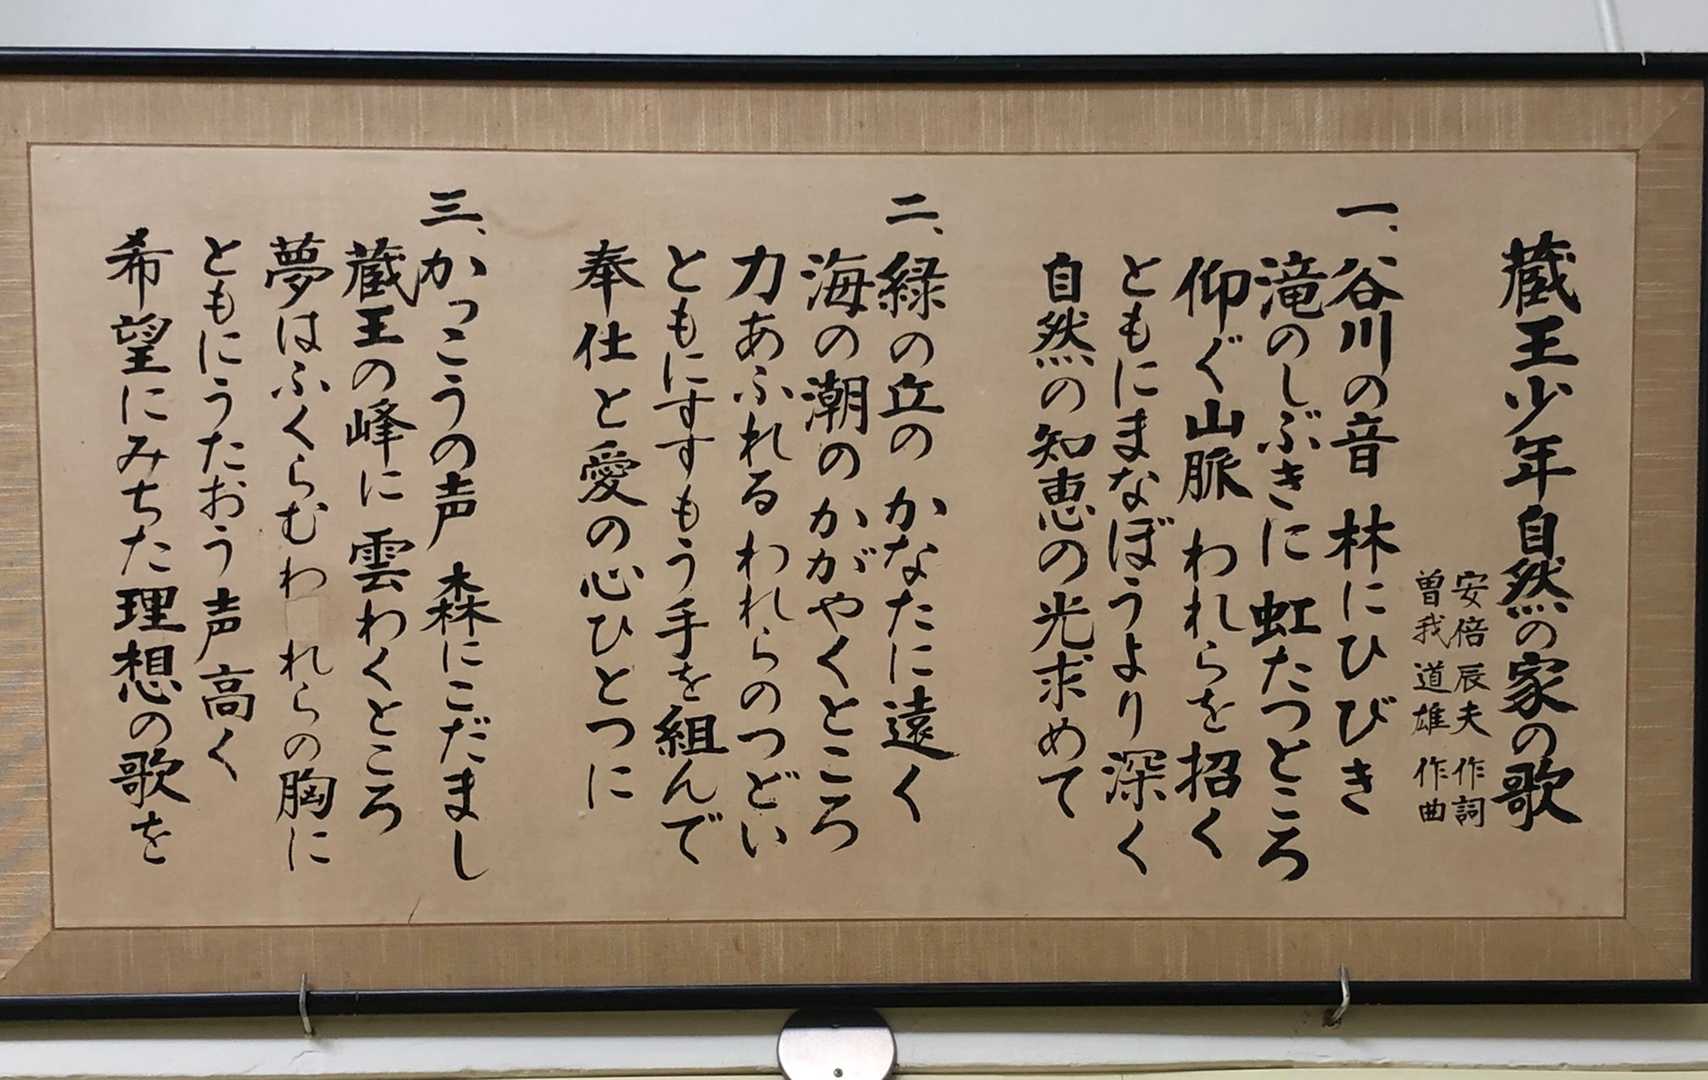 蔵王少年自然の家の歌
安倍辰夫 作詞
曽我道雄 作曲
一、谷川の音 林にひびき
滝のしぶきに 虹たつところ
仰ぐ山脈 われらを招く
ともにまなぼうより深く
自然の知恵の光求めて
二、緑の丘の かなたに遠く
海の潮の かがやくところ
力あふれる われらのつどい
ともにすすもう手を組んで
奉仕と愛の心ひとつに
三、かっこうの声 森にこだまし
蔵王の峰に 雲わくところ
夢はふくらむわれらの胸に
ともにうたおう声高く
希望にみちた理想の歌を